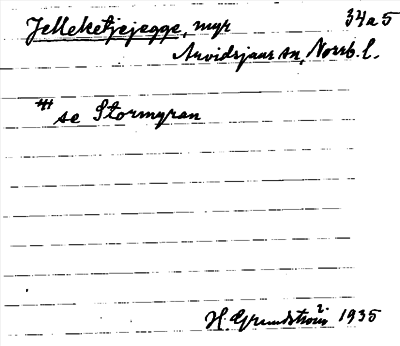 Jelleketjejegge, myr 34a5
Arvidsjaur sn, Norrb. l.
se Stormyran
H. Grundström 1935